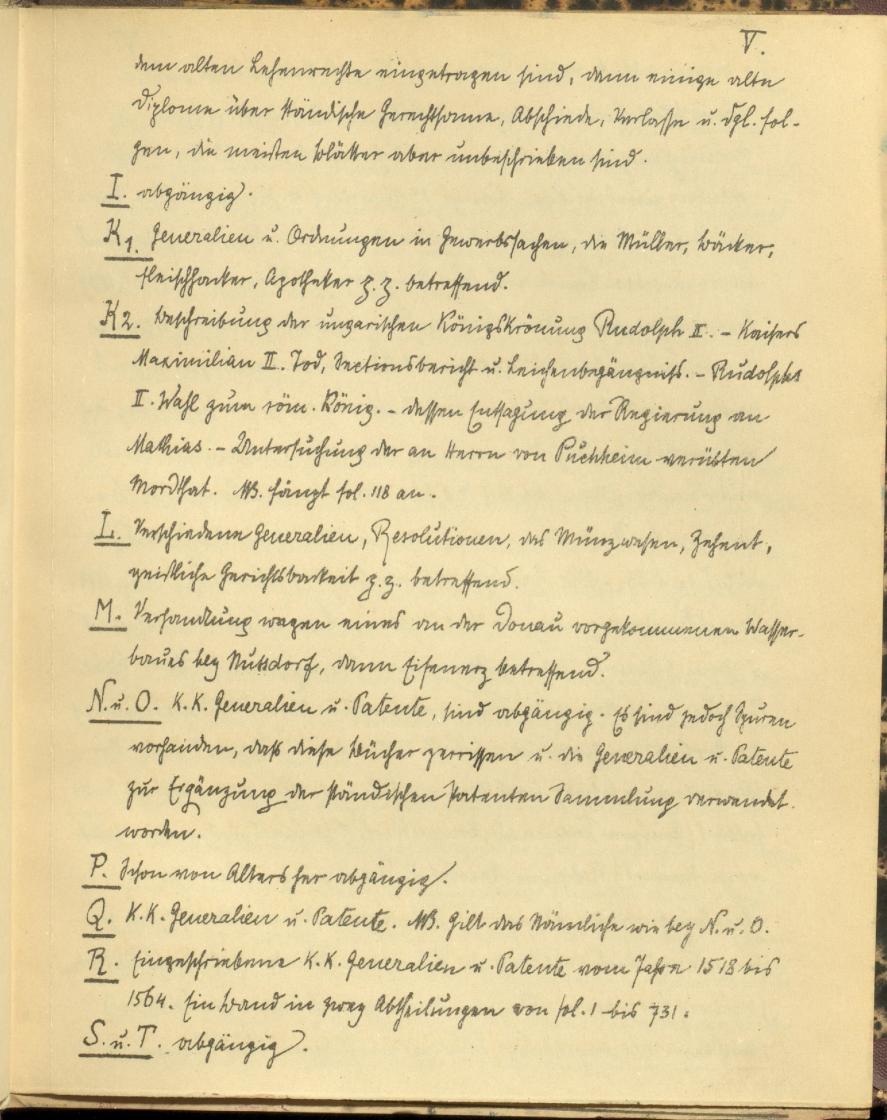 V.
dem alten Lehenrechte eingetragen sind, dann einige alte
Diplome über ständische Gerechtsame, Abschiede, Verlasse u. dgl. fol-
gen, die meisten Blätter aber unbeschrieben sind.
I. abgängig.
K1. Generalien u. Ordnungen in Gewerbssachen, die Müller, Bäcker,
Fleischhacker, Apotheker z. z. betreffend.
K2. Beschreibung der ungarischen Königskrönung Rudolph II. - Kaisers
Maximilian II. Tod, Sectionsbericht u. Leichenbegängniß. - Rudolphs
II. Wahl zum röm. König. - dessen Entsagung der Regierung an
Mathias. - Untersuchung der an Herrn von Puchheim verübten
Mordthat. NB. fängt fol. 118 an.
L. Verschiedene Generalien, Resolutionen, das Münzwesen, Zehent,
geistliche Gerichtsbarkeit z. z. betreffend.
M. Verhandlung wegen eines an der Donau vorgekommenen Wasser-
baues bey Nußdorf, dann Eisenerz betreffend.
N. u. O. K. K. Generalien u. Patente, sind abgängig. Es sind jedoch Spuren
vorhanden, daß diese Bücher zerrissen u. die Generalien u. Patente
zur Ergänzung der ständischen Patenten Sammlung verwendet
worden.
P. Schon von Alters her abgängig.
Q. K. K. Generalien u. Patente. NB. Gilt das Nämliche wie bey N. u. O.
R. Eingeschriebene K. K. Generalien u. Patente vom Jahre 1518 bis
1564. Ein Band in zwey Abtheilungen von fol. 1 bis 731.
S. u. T. abgängig.